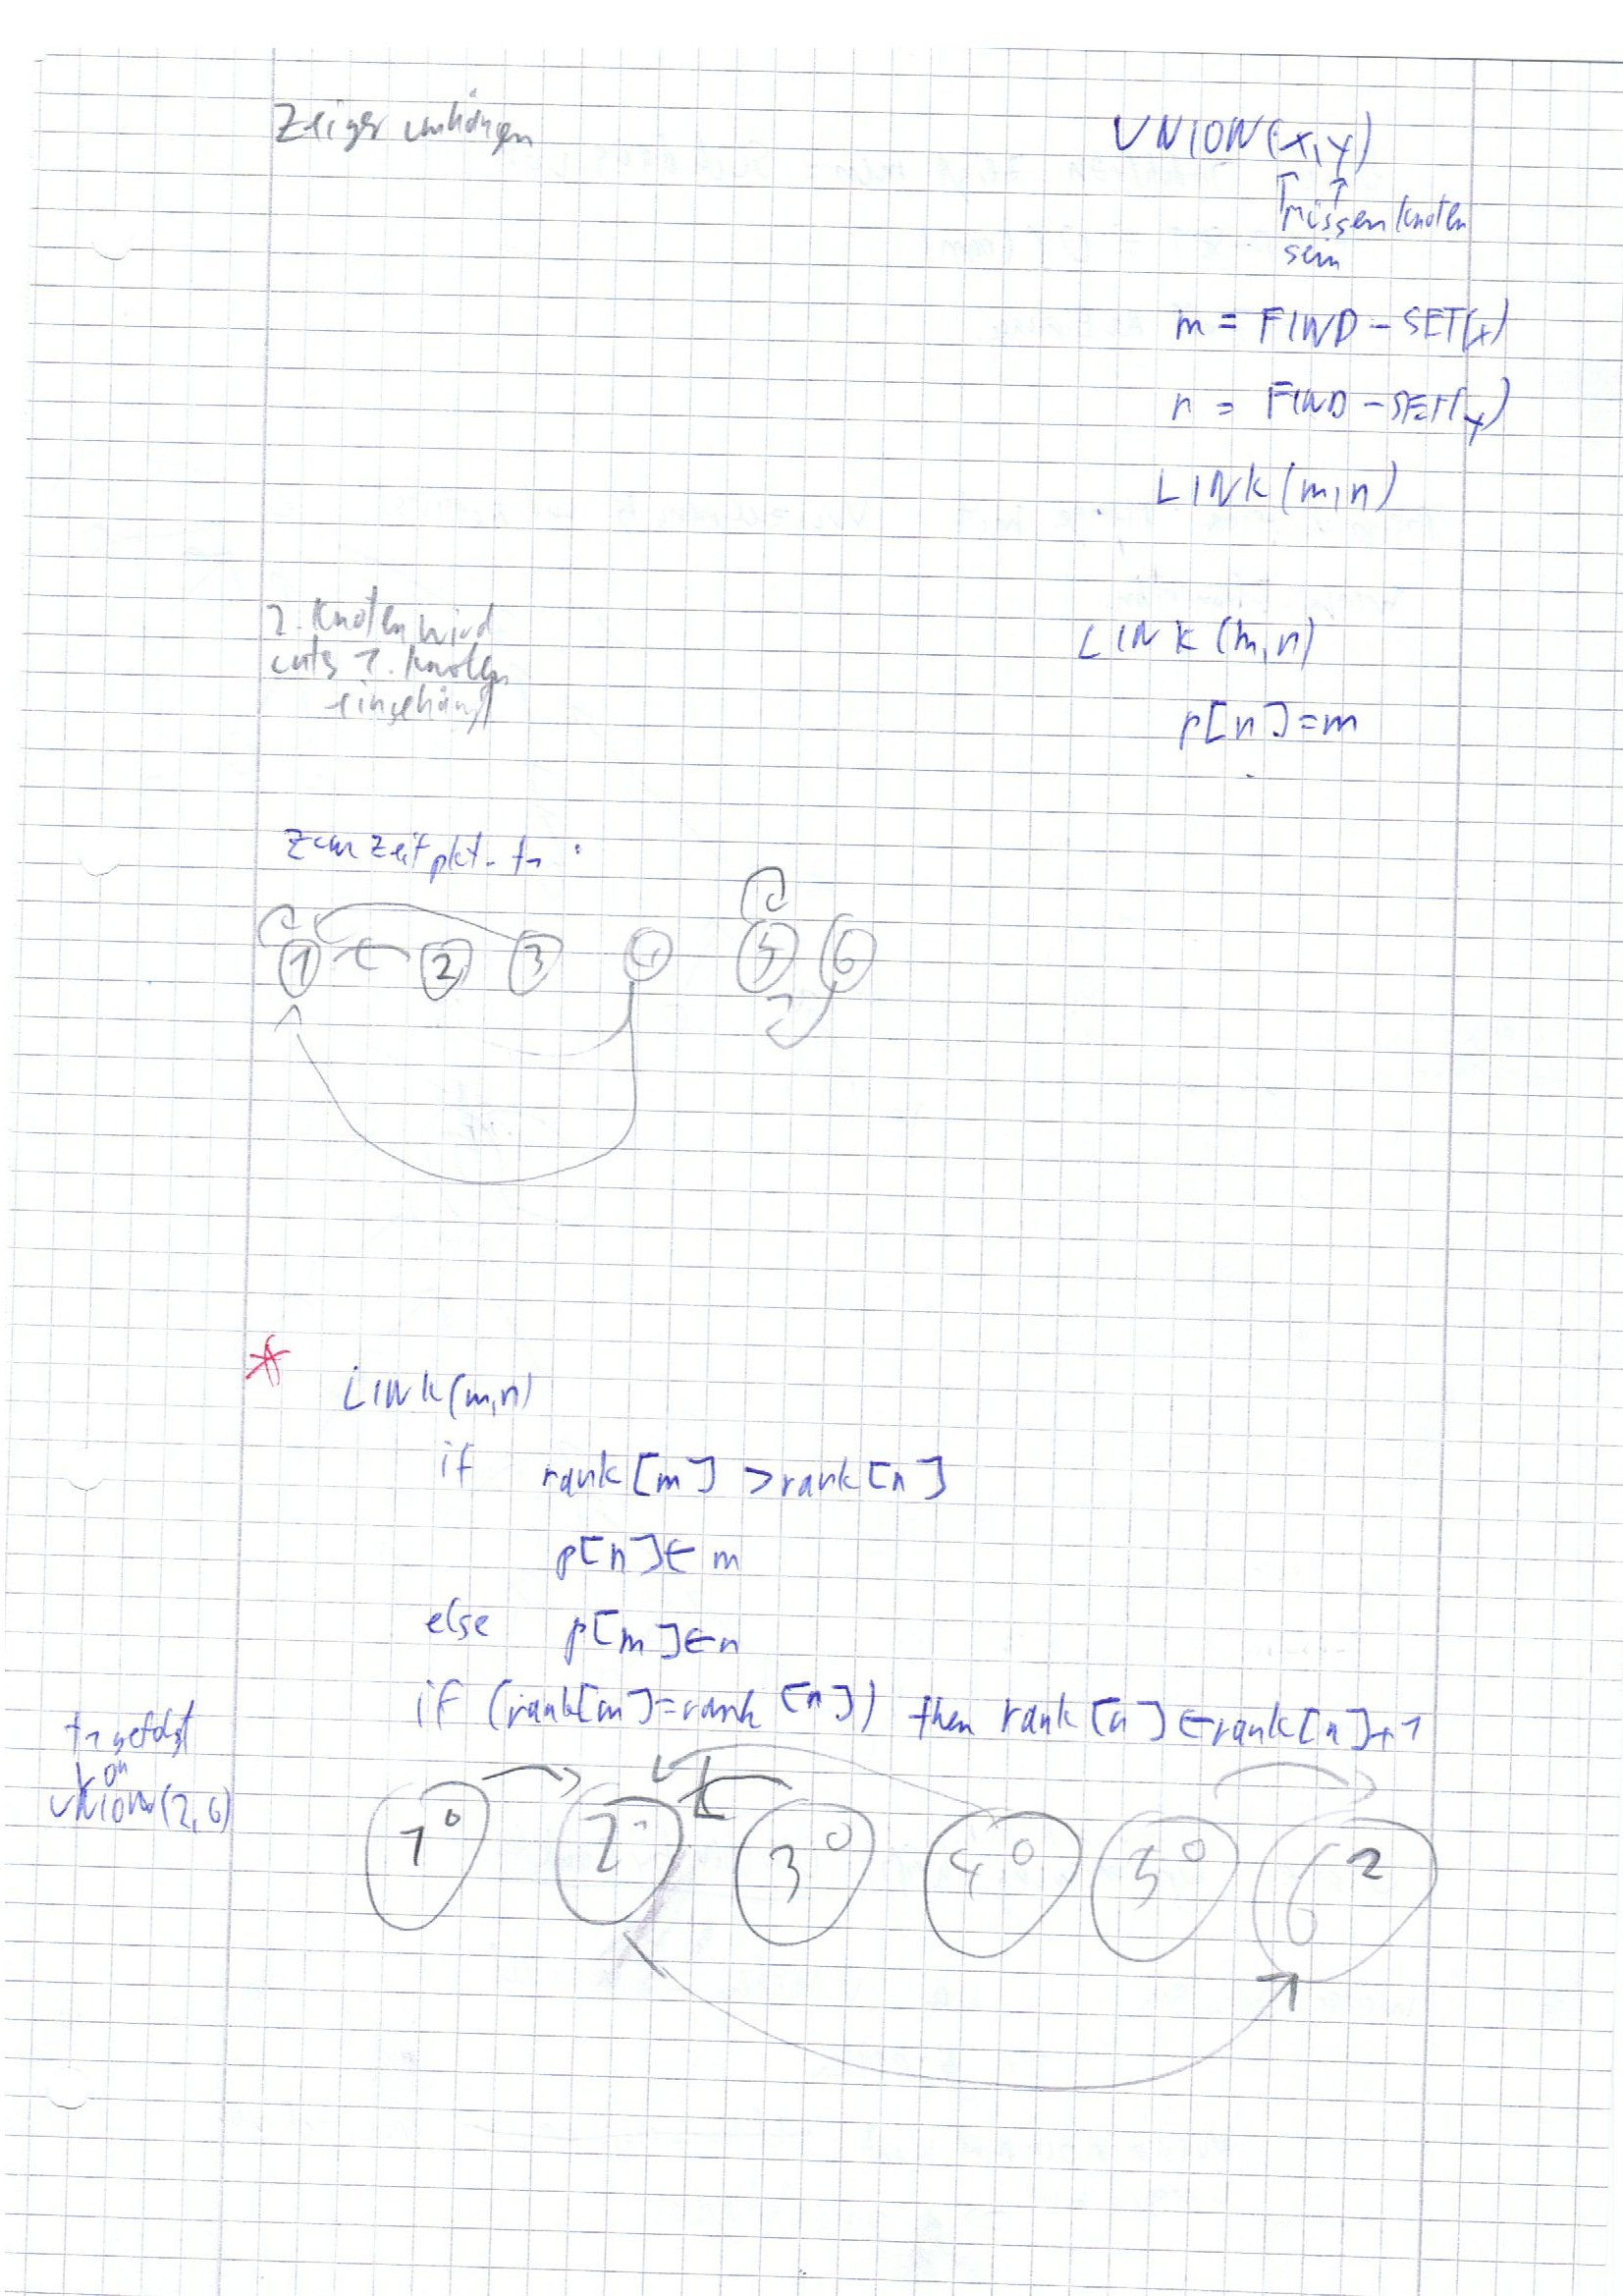 Zeiger umhängen
UNION(x,y)
müssen Knoten
sein
m = FIND-SET(x)
n = FIND-SET(y)
LINK(m,n)
2. Knoten wird
unter 1. Knoten
eingehängt
LINK(m,n)
p[n]=m
Zum Zeitpkt. t1:
1 2 3 4 5 6
* LINK(m,n)
if rank[m] > rank[n]
p[n]← m
else p[m]←n
if (rank[m]=rank[n]) then rank[n]←rank[n]+1
t1 gefolgt
von
UNION(2,6)
1 0 2 3 0 4 0 5 0 6 2